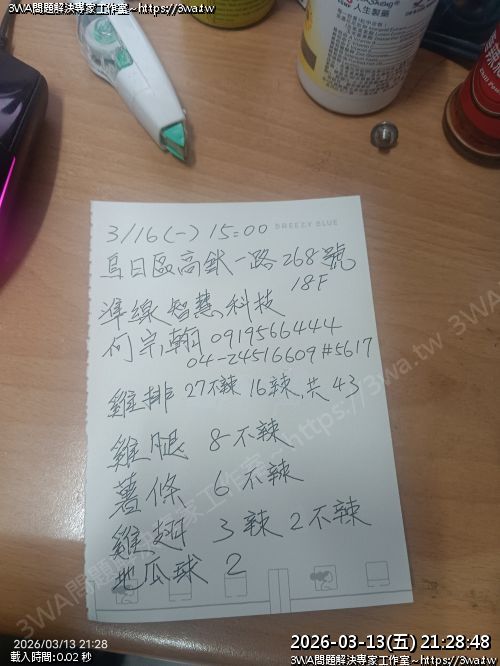 3WA問題解決專家工作室~https://3wa.tw
3WA問題解決專家工作室~https://3wa.tw
人生製藥
BREEZY BLUE
3/16(一) 15:00
烏日區高鐵一路268號
18F
準線智慧科技
何宗翰 0919566444
04-24516609#5617
雞排 27不辣 16辣,共43
雞腿 8不辣
薯條 6不辣
雞翅 3辣2不辣
地瓜球 2
3WA問題解決專家工作室~https://3wa.tw
2026/03/13 21:28
載入時間:0.02 秒
2026-03-13(五) 21:28:48
3WA問題解決專家工作室~https://3wa.tw